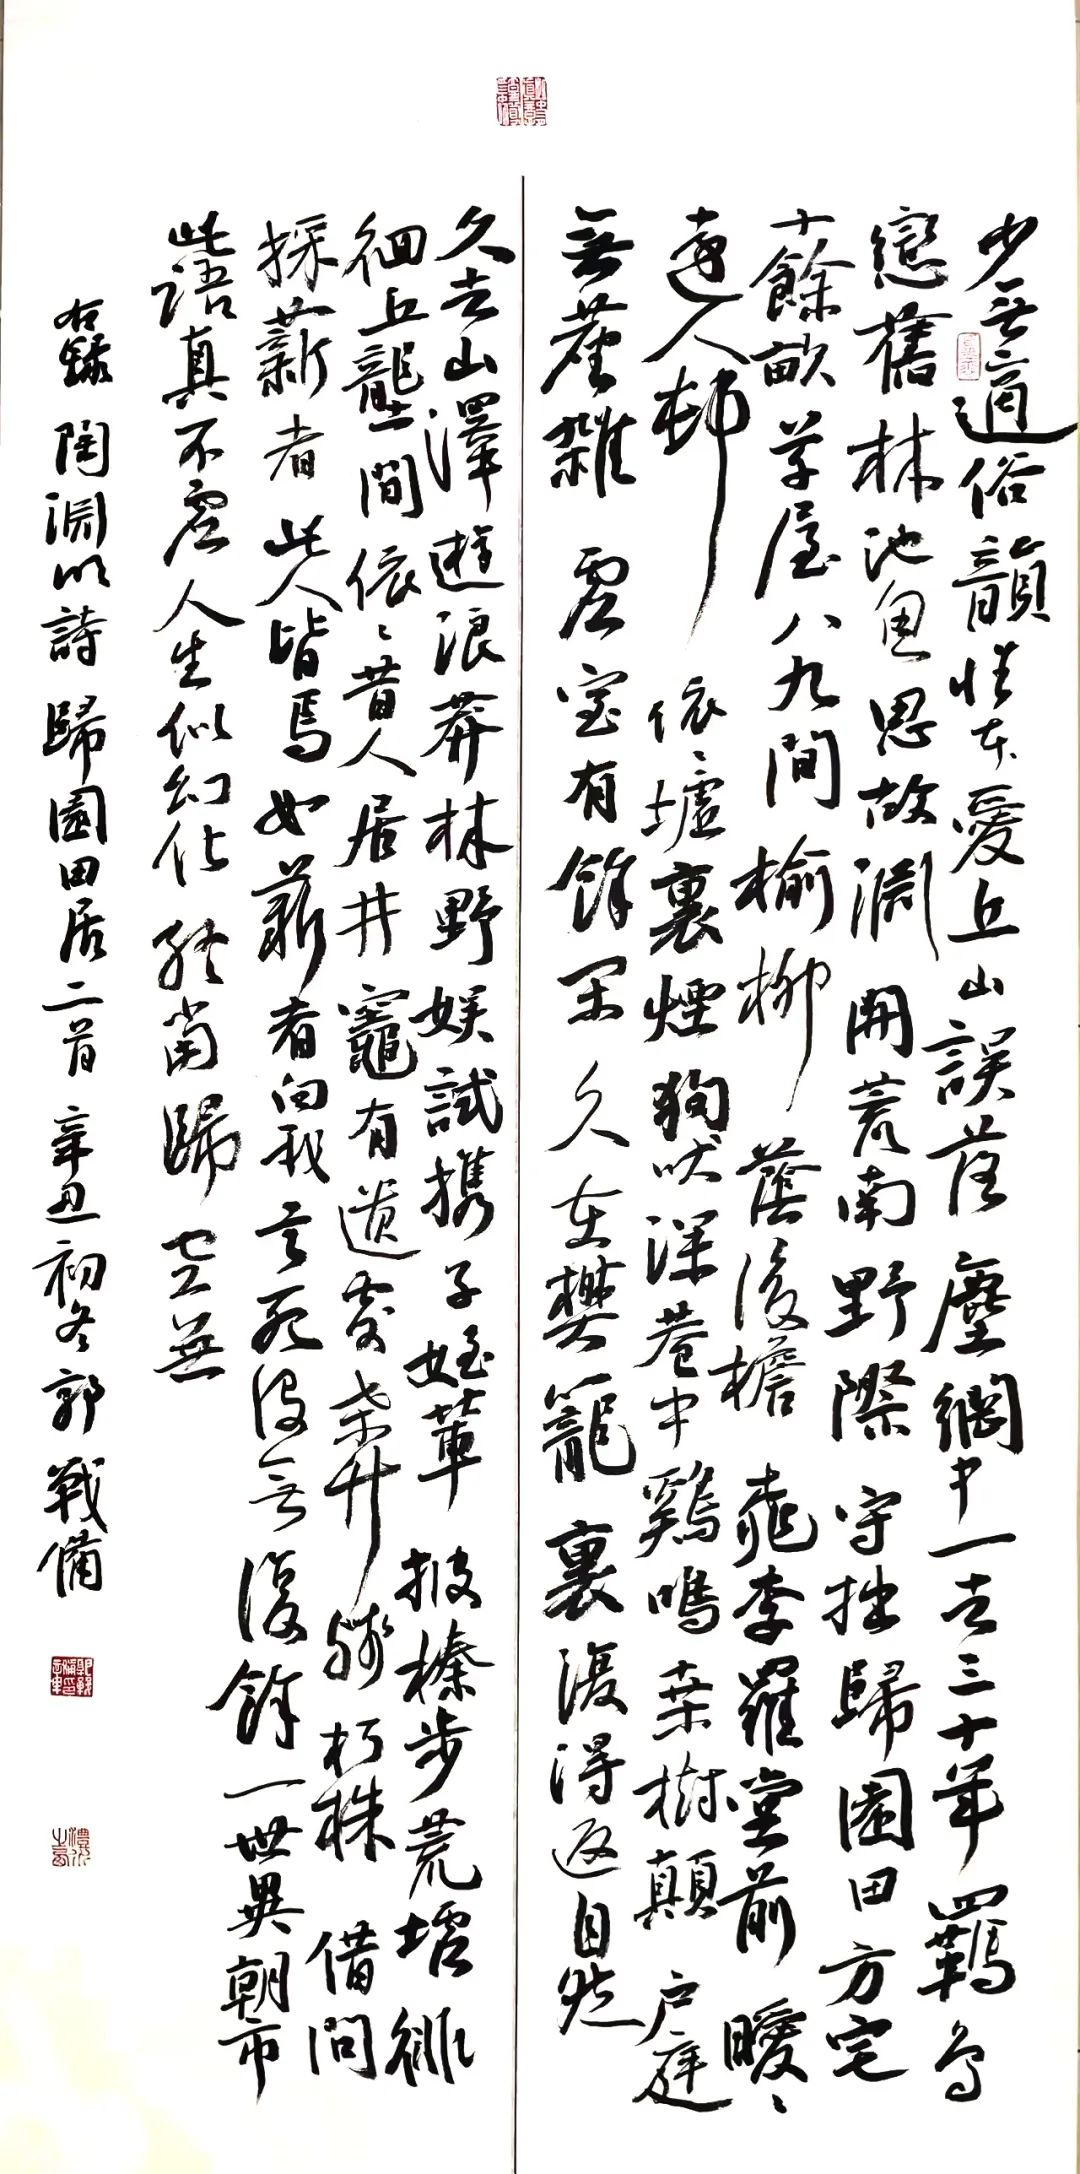 少無適俗韻性本愛丘山誤落塵網中一去三十年羈鳥
戀舊林池魚思故淵開荒南野際守拙歸園田方宅
十餘畝草屋八九間榆柳蔭後檐桃李羅堂前曖〻
遠人邨依〻墟裏煙狗吠深巷中鷄鳴桑樹顛户庭
無塵雜虛室有餘閑久在樊籠裏復得返自然
久去山澤遊浪莽林野娛試攜子姪輩披榛步荒墟徘
徊丘壟間依〻昔人居井竈有遺處桑竹殘朽株借問
採薪者此人皆焉如薪者向我言死没無復餘一世異朝市
此語真不虛人生似幻化終當歸空無
右錄陶淵明詩歸園田居二首辛丑初冬郭戰備